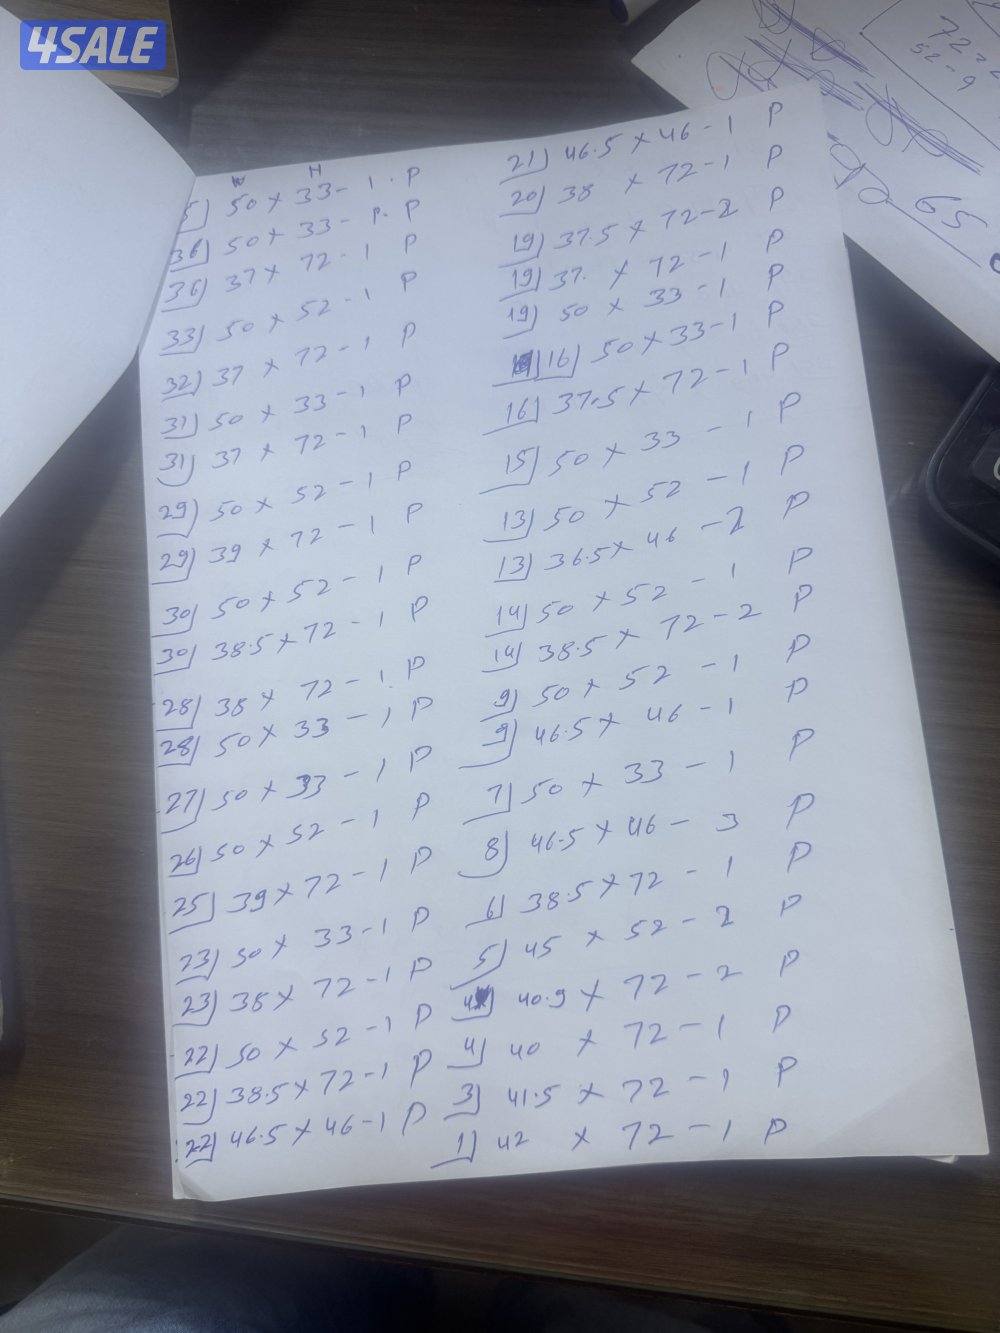 4SALE
W H
5) 50 x 33 - 1. P
36) 50 x 33 - P. P
36) 37 x 72 - 1 P
33) 50 x 52 - 1 P
32) 37 x 72 - 1 P
31) 50 x 33 - 1 P
31) 37 x 72 - 1 P
29) 50 x 52 - 1 P
29) 39 x 72 - 1 P
30) 50 x 52 - 1 P
30) 38.5 x 72 - 1 P
28) 38 x 72 - 1 P
28) 50 x 33 - 1 P
27) 50 x 33 - 1 P
26) 50 x 52 - 1 P
25) 39 x 72 - 1 P
23) 50 x 33 - 1 P
23) 38 x 72 - 1 P
22) 50 x 52 - 1 P
22) 38.5 x 72 - 1 P
22) 46.5 x 46 - 1 P
21) 46.5 x 46 - 1 P
20) 38 x 72 - 1 P
19) 37.5 x 72 - 2 P
19) 37. x 72 - 1 P
19) 50 x 33 - 1 P
16) 50 x 33 - 1 P
16) 37.5 x 72 - 1 P
15) 50 x 33 - 1 P
13) 50 x 52 - 1 P
13) 36.5 x 46 - 2 P
14) 50 x 52 - 1 P
14) 38.5 x 72 - 2 P
9) 50 x 52 - 1 P
9) 46.5 x 46 - 1 P
7) 50 x 33 - 1 P
8) 46.5 x 46 - 3 P
6) 38.5 x 72 - 1 P
5) 45 x 52 - 2 P
4) 40.9 x 72 - 2 P
4) 40 x 72 - 1 P
3) 41.5 x 72 - 1 P
1) 42 x 72 - 1 P
52 - 9
65